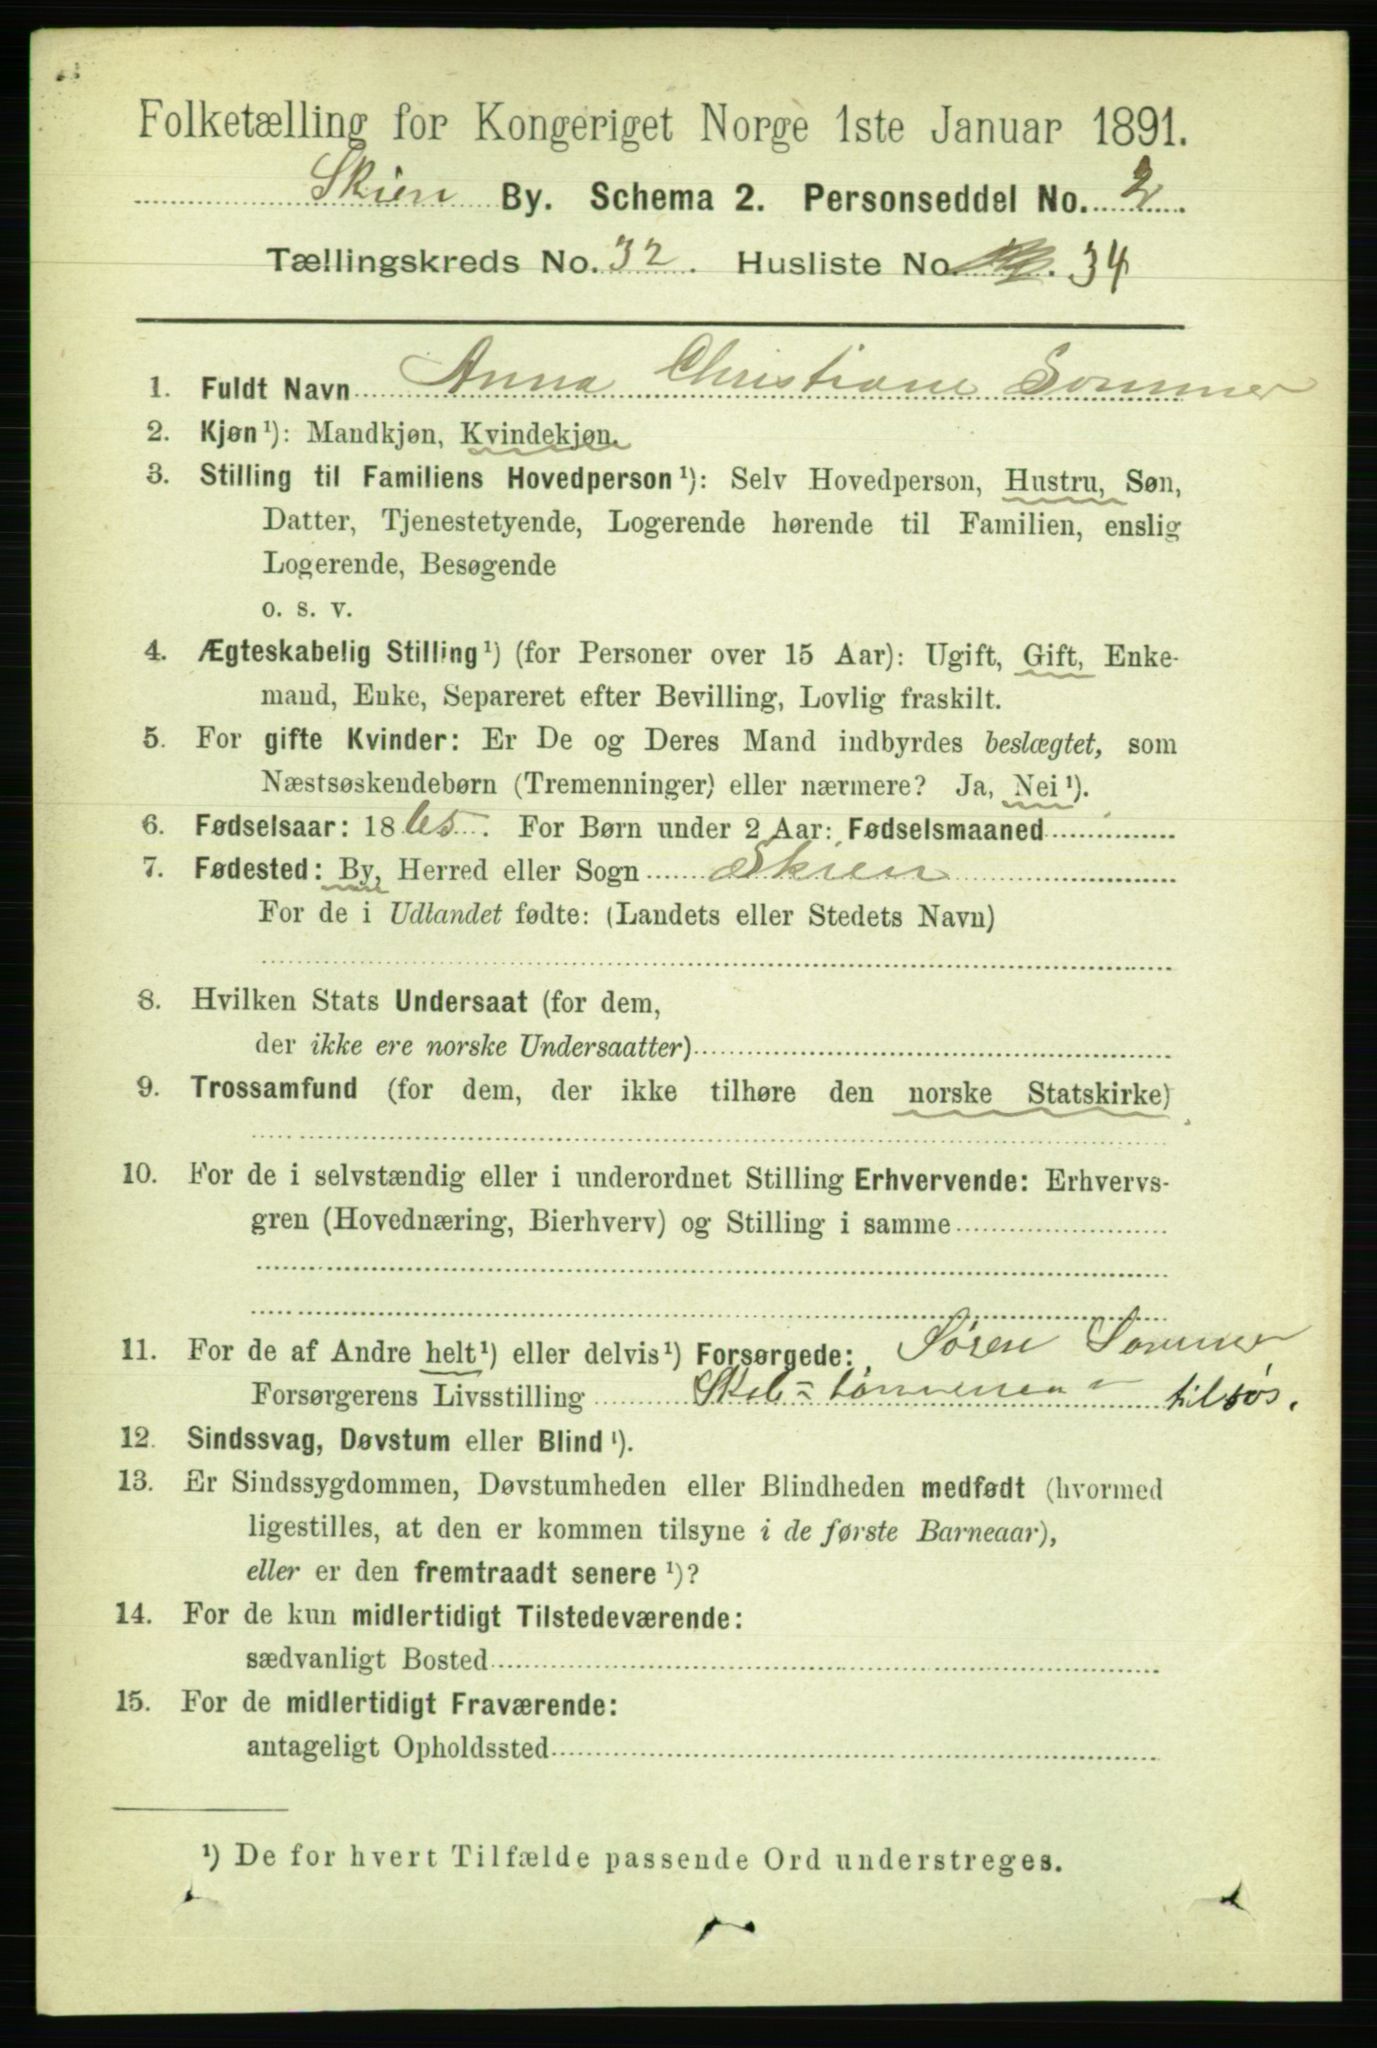 Folketælling for Kongeriget Norge 1ste Januar 1891.
Skien By. Schema 2. Personseddel No. 2
Tællingskreds No. 32. Husliste No. 34
1. Fuldt Navn Anna Christiane Sommer
2. Kjøn¹): Mandkjøn, Kvindekjøn
3. Stilling til Familiens Hovedperson¹): Selv Hovedperson, Hustru, Søn,
Datter, Tjenestetyende, Logerende hørende til Familien, enslig
Logerende, Besøgende
o. s. v.
4. Ægteskabelig Stilling¹) (for Personer over 15 Aar): Ugift, Gift, Enke-
mand, Enke, Separeret efter Bevilling, Lovlig fraskilt.
5. For gifte Kvinder: Er De og Deres Mand indbyrdes beslægtet, som
Næstsøskendebørn (Tremenninger) eller nærmere? Ja, Nei¹).
6. Fødselsaar: 1865. For Børn under 2 Aar: Fødselsmaaned
7. Fødested: By, Herred eller Sogn Skien
For de i Udlandet fødte: (Landets eller Stedets Navn)
8. Hvilken Stats Undersaat (for dem,
der ikke ere norske Undersaatter)
9. Trossamfund (for dem, der ikke tilhøre den norske Statskirke)
10. For de i selvstændig eller i underordnet Stilling Erhvervende: Erhvervs-
gren (Hovednæring, Bierhverv) og Stilling i samme
11. For de af Andre helt¹) eller delvis¹) Forsørgede: Søren Sommer
Forsørgerens Livsstilling tilsøs.
12. Sindssvag, Døvstum eller Blind¹).
13. Er Sindssygdommen, Døvstumheden eller Blindheden medfødt (hvormed
ligestilles, at den er kommen tilsyne i de første Barneaar),
eller er den fremtraadt senere¹)?
14. For de kun midlertidigt Tilstedeværende:
sædvanligt Bosted
15. For de midlertidigt Fraværende:
antageligt Opholdssted
¹) De for hvert Tilfælde passende Ord understreges.